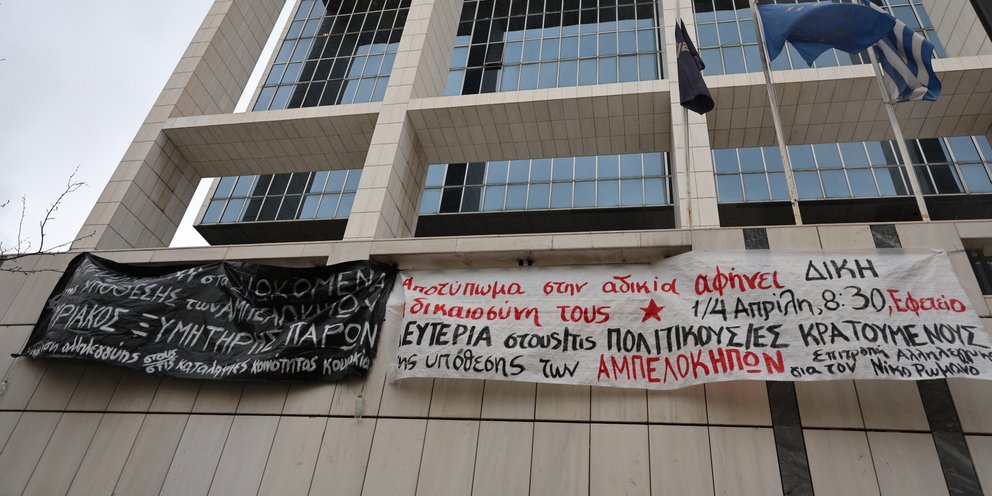 ΥΠΟΘΕΣΗΣ των ΑΜΠΕΛΟΚΗΠΩΝ
ΚΥΡΙΑΚΟΣ ΞΥΜΗΤΗΡΗΣ ΠΑΡΩΝ
στους
στις καταλήψεις κοινότητας
Αποτύπωμα στην αδικία αφήνει
δικαιοσύνη τους ★
ΔΙΚΗ
1/4 Απρίλη, 8:30, Εφετείο
ΕΥΤΕΡΙΑ στους/τις ΠΟΛΙΤΙΚΟΥΣ/ΕΣ ΚΡΑΤΟΥΜΕΝΟΥΣ
της υπόθεσης των ΑΜΠΕΛΟΚΗΠΩΝ
Επιτροπή Αλληλεγγύης
για τον Νίκο Ρωμανό